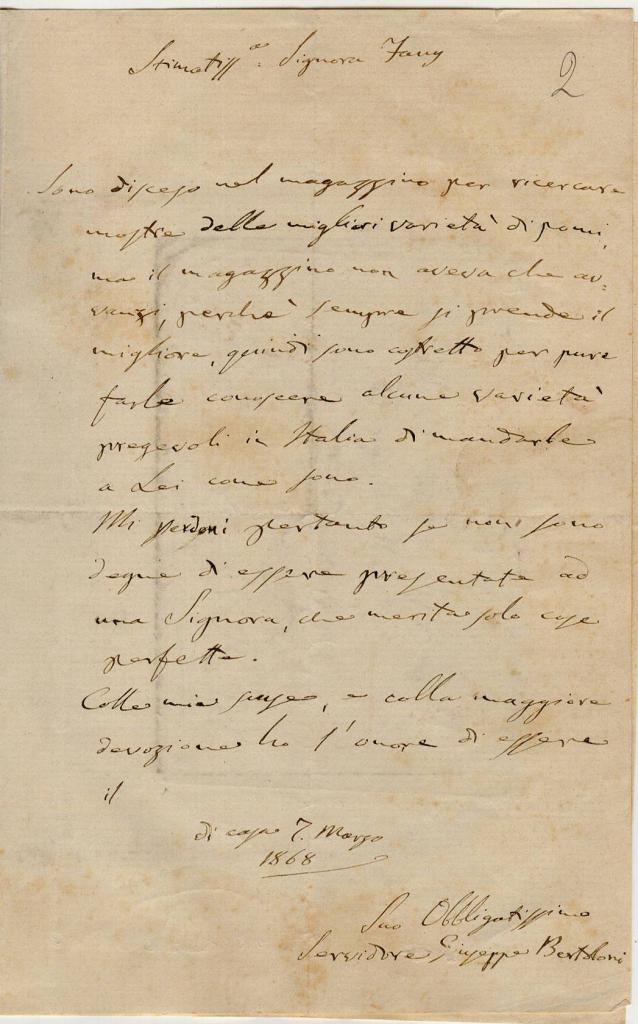 Stimatiss.ª Signora Fany
2
Sono disceso nel magazzino per ricercare
mostre delle migliori varietà di pomi,
ma il magazzino non aveva che av=
vanzi, perchè sempre si prende il
migliore, quindi sono costretto per pure
farle conoscere alcune varietà
pregevoli in Italia di mandarle
a Lei come sono.
Mi perdoni pertanto se non sono
degne di essere presentate ad
una Signora, che merita solo cose
perfette.
Colle mie scuse, e colla maggiore
devozione ho l'onore di essere
il
di casa 7. Marzo
1868
Suo Obbligatissimo
Servidore Giuseppe Bertoloni